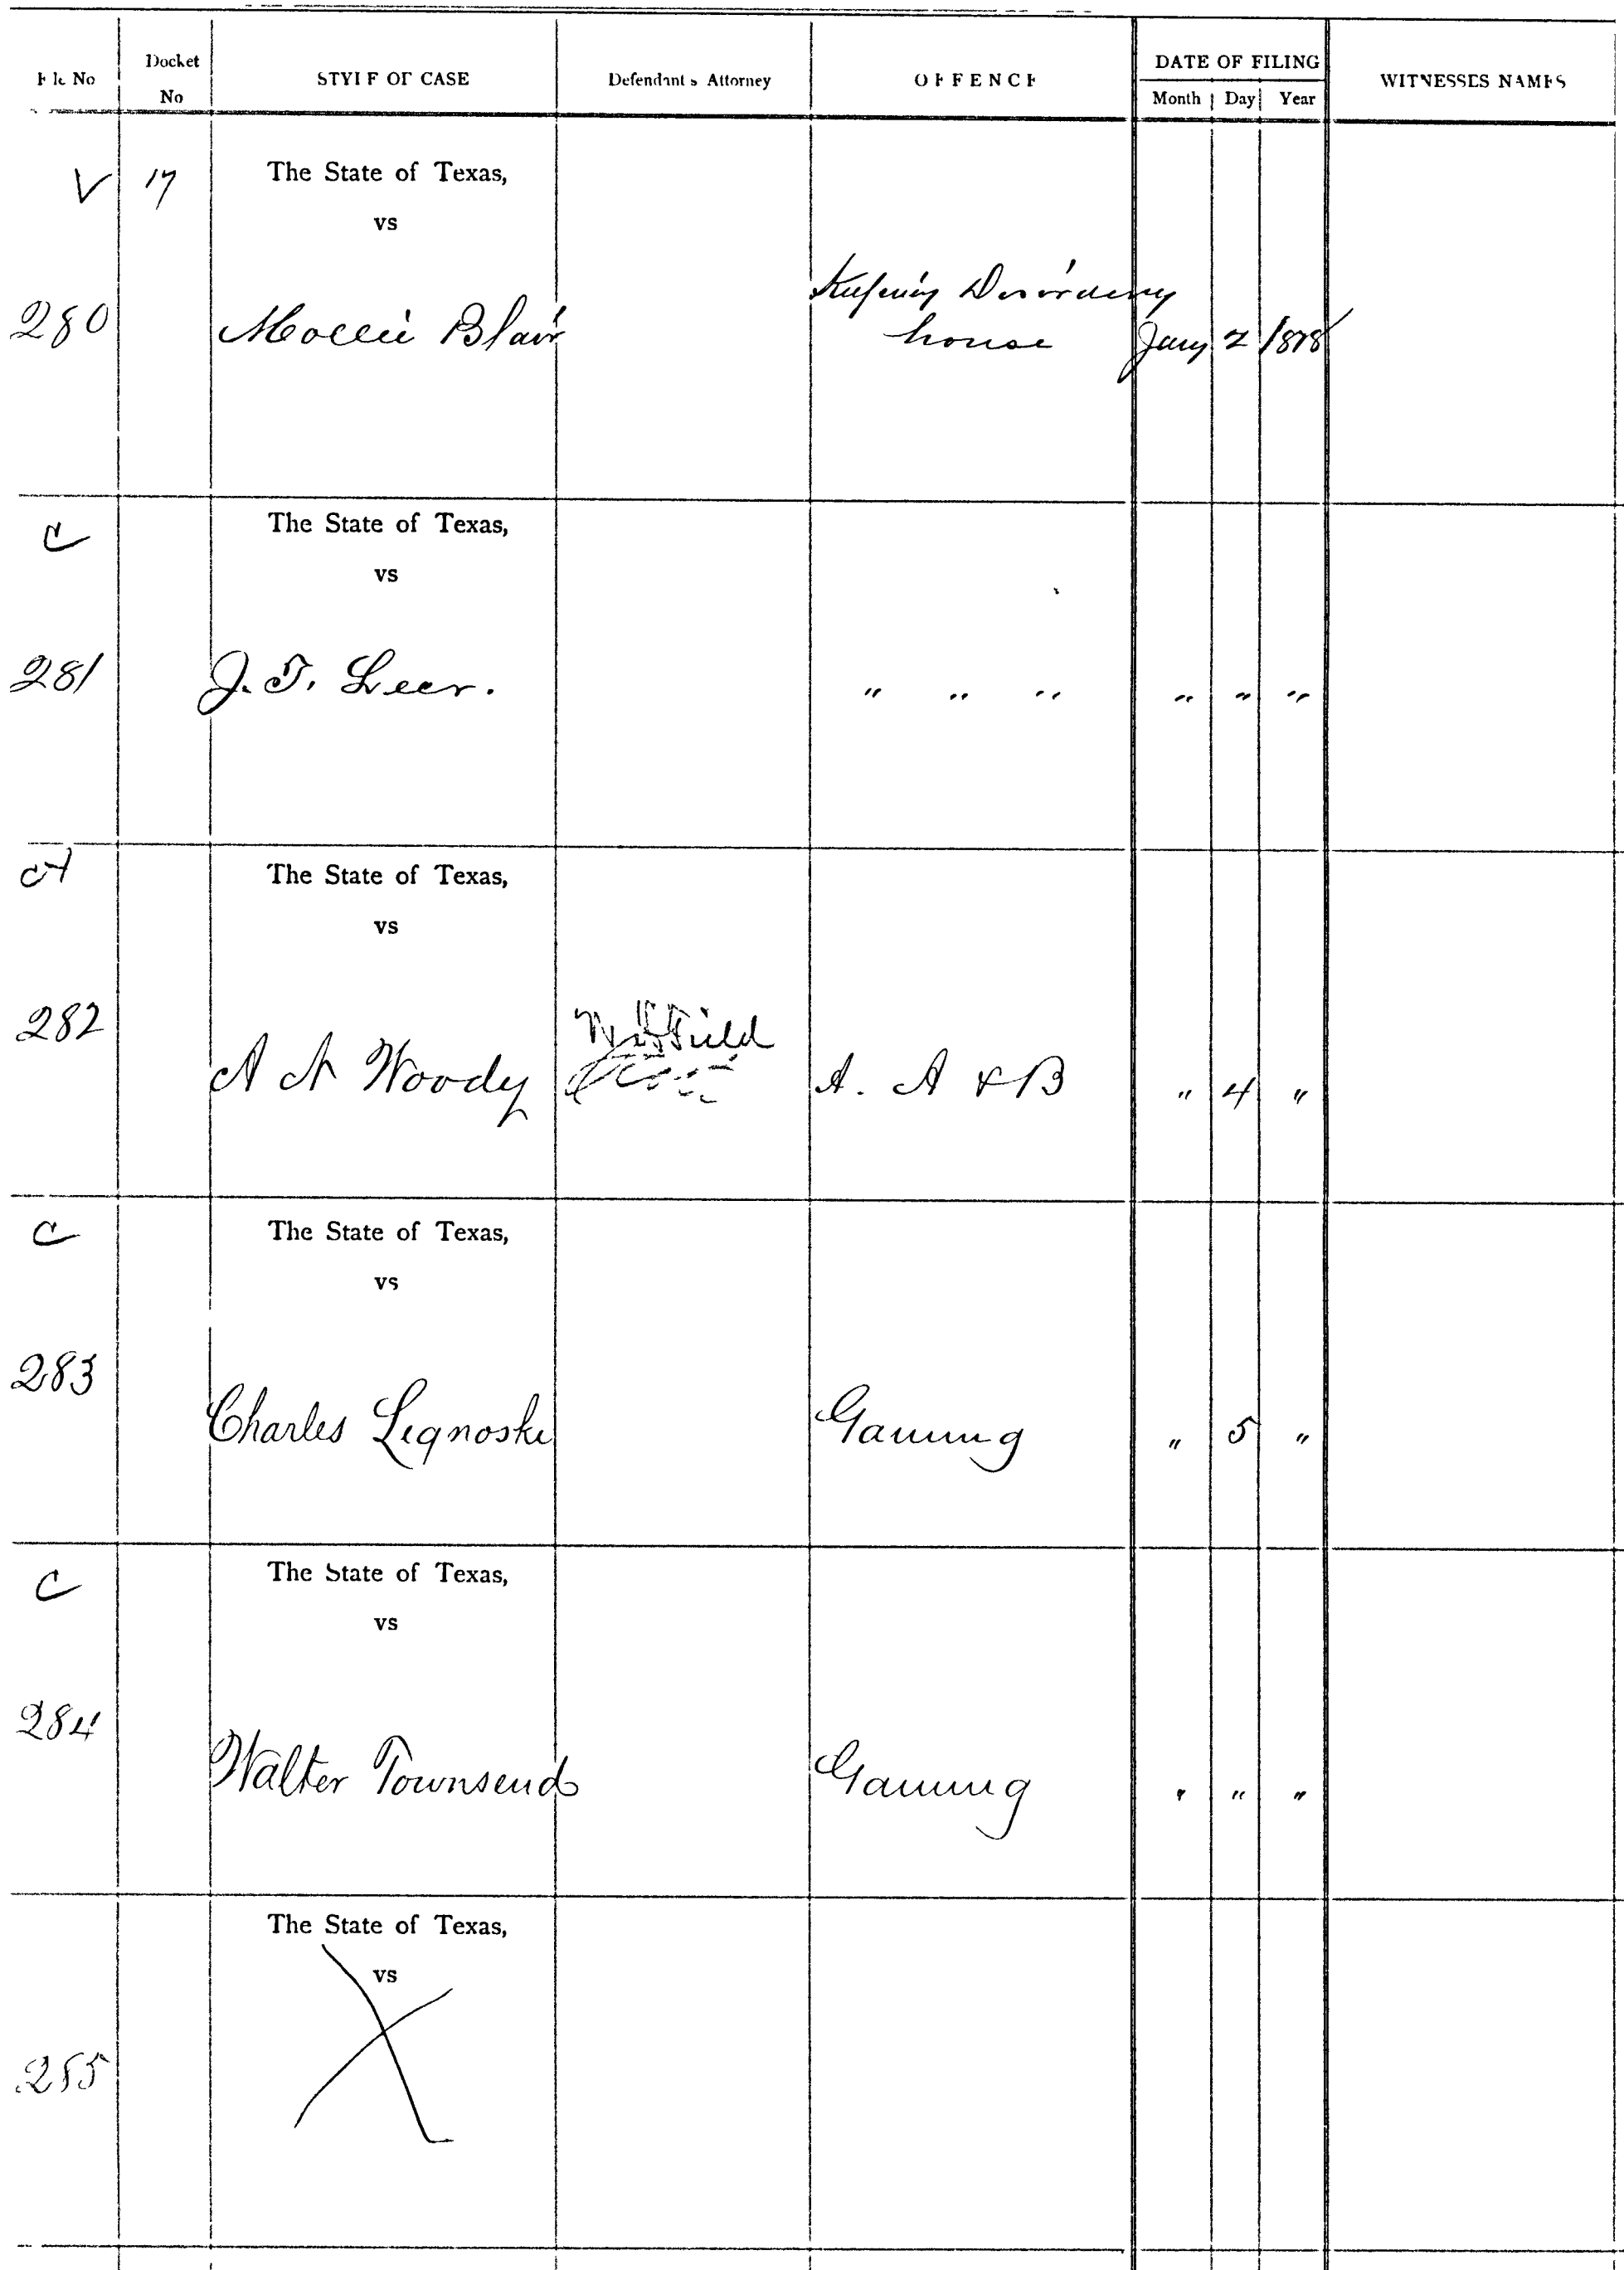 File No
Docket No
STYLE OF CASE
Defendant's Attorney
OFFENCE
DATE OF FILING
Month Day Year
WITNESSES NAMES
V 17 The State of Texas,
vs
280 Mollie Blair Keeping Disorderly house Jany 2 1878
C The State of Texas,
vs
281 J. T. Leer. " " " " " "
The State of Texas,
vs
282 A A Woody A. A & B " 4 "
C The State of Texas,
vs
283 Charles Lignoske Gaming " 5 "
C The State of Texas,
vs
284 Walter Townsend Gaming " " "
The State of Texas,
vs
285 X